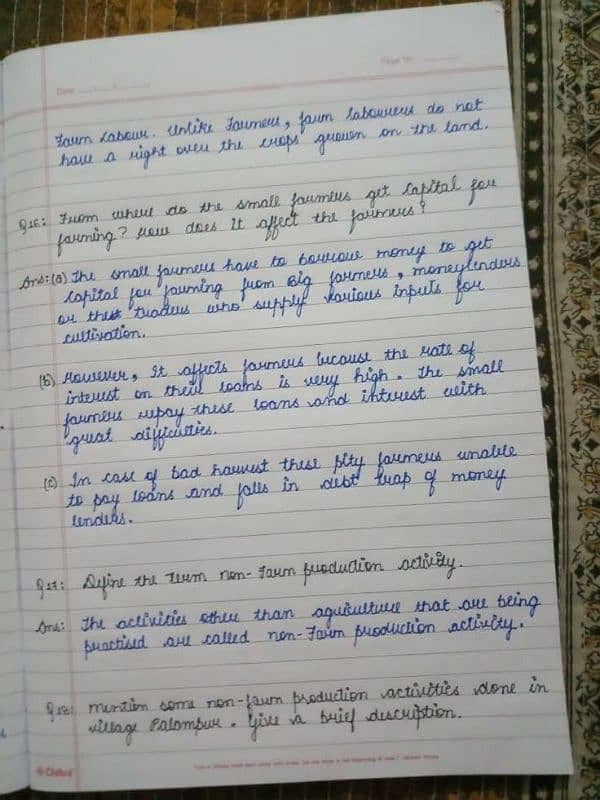 Date
Page No.
Farm Labour. Unlike Farmers, farm labourers do not
have a right over the crops grown on the land.
Q16: From where do the small farmers get Capital for
farming? How does it affect the farmers?
Ans:(a) The small farmers have to borrow money to get
Capital for farming from Big farmers, moneylenders
or the traders who supply various inputs for
cultivation.
(b) However, It affects farmers because the rate of
interest on their loans is very high. The small
farmers repay these loans and interest with
great difficulties.
(c) In case of bad harvest these pity farmers unable
to pay loans and falls in debt trap of money
lenders.
Q17: Define the term non-Farm production activity.
Ans: The activities other than agriculture that are being
practised are called non-Farm production activity.
Q18: Mention some non-farm production activities done in
village Palampur. Give a brief description.